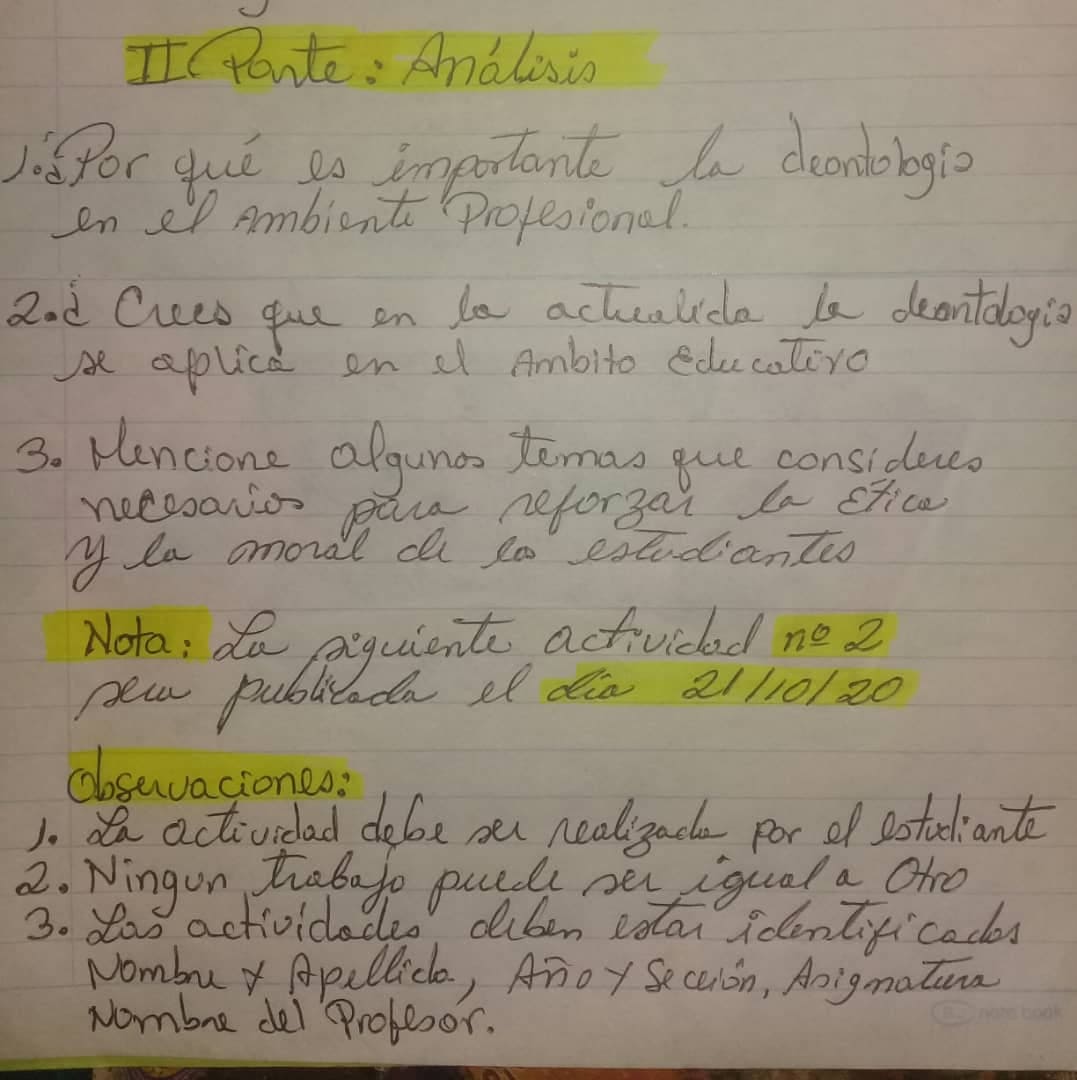 II Parte: Análisis
1. ¿Por qué es importante la deontologia
en el Ambiente Profesional.
2. ¿ Crees que en la actualida la deontologia
se aplica en el Ambito Educativo
3. Mencione algunos temas que consideres
necesarios para reforzar la Etica
y la moral de los estudiantes
Nota: La siguiente actividad nº 2
sera publicada el día 21/10/20
Observaciones:
1. La actividad debe ser realizada por el estudiante
2. Ningun trabajo puede ser igual a Otro
3. Las actividades deben estar identificados
Nombre y Apellido, Año y Sección, Asignatura
Nombre del Profesor.
note book